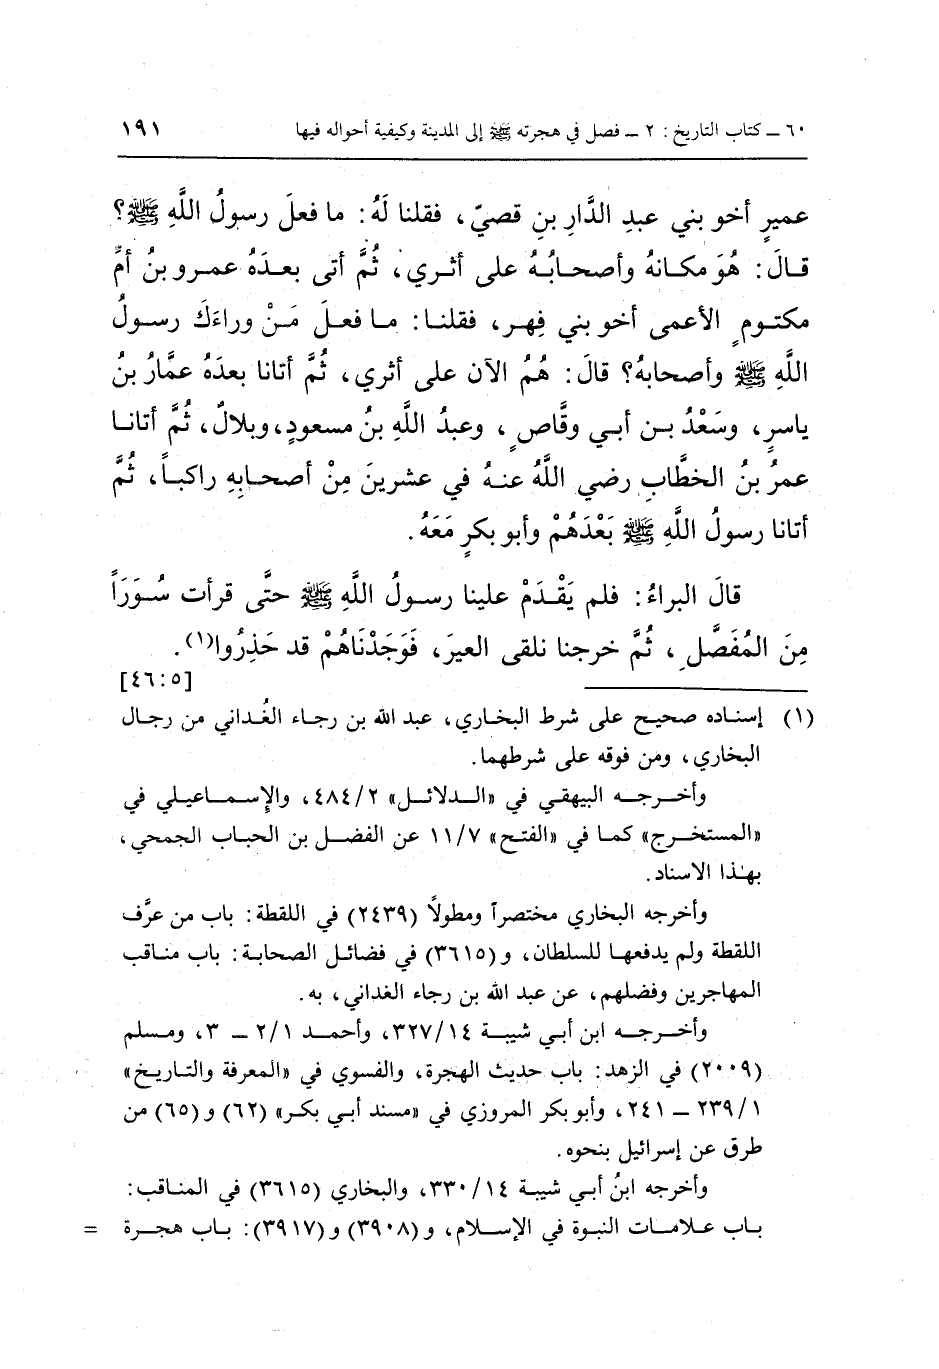 ٦٠ ــ كتاب التاريخ : ٢ ــ فصل في هجرته ﷺ إلى المدينة وكيفية أحواله فيها ١٩١
عميرٍ أخو بني عبدِ الدَّارِ بنِ قصيّ، فقلنا لَهُ: ما فعلَ رسولُ اللَّهِ ﷺ؟
قالَ: هُوَ مكانهُ وأصحابُهُ على أثري، ثُمَّ أتى بعدَهُ عمرو بنُ أمِّ
مكتومٍ الأعمى أخو بني فِهر، فقلنا: ما فعلَ مَنْ وراءَكَ رسولُ
اللَّهِ ﷺ وأصحابهُ؟ قالَ: هُمُ الآن على أثري، ثُمَّ أتانا بعدَهُ عمَّارُ بنُ
ياسرٍ، وسَعْدُ بن أبي وقَّاصٍ، وعبدُ اللَّهِ بنُ مسعودٍ، وبلالٌ، ثُمَّ أتانا
عمرُ بنُ الخطَّابِ رضي اللَّهُ عنهُ في عشرينَ مِنْ أصحابِهِ راكباً، ثُمَّ
أتانا رسولُ اللَّهِ ﷺ بَعْدَهُمْ وأبو بكرٍ مَعَهُ.
قالَ البراءُ: فلم يَقْدَمْ علينا رسولُ اللَّهِ ﷺ حتَّى قرأت سُوَرَاً
مِنَ المُفَصَّلِ، ثُمَّ خرجنا نلقى العيرَ، فَوَجَدْنَاهُمْ قد حَذِرُوا(١).
[٤٦:٥]
(١) إسناده صحيح على شرط البخاري، عبد الله بن رجاء الغُداني من رجال
البخاري، ومن فوقه على شرطهما.
وأخرجه البيهقي في «الدلائل» ٤٨٤/٢، والإسماعيلي في
«المستخرج» كما في «الفتح» ١١/٧ عن الفضل بن الحباب الجمحي،
بهذا الاسناد.
وأخرجه البخاري مختصراً ومطولًا (٢٤٣٩) في اللقطة: باب من عرَّف
اللقطة ولم يدفعها للسلطان، و(٣٦١٥) في فضائل الصحابة: باب مناقب
المهاجرين وفضلهم، عن عبد الله بن رجاء الغداني، به.
وأخرجه ابن أبي شيبة ٣٢٧/١٤، وأحمد ٢/١ ــ ٣، ومسلم
(٢٠٠٩) في الزهد: باب حديث الهجرة، والفسوي في «المعرفة والتاريخ»
٢٣٩/١ ــ ٢٤١، وأبو بكر المروزي في «مسند أبي بكر» (٦٢) و(٦٥) من
طرق عن إسرائيل بنحوه.
وأخرجه ابنُ أبي شيبة ٣٣٠/١٤، والبخاري (٣٦١٥) في المناقب:
باب علامات النبوة في الإسلام، و(٣٩٠٨) و(٣٩١٧): باب هجرة =